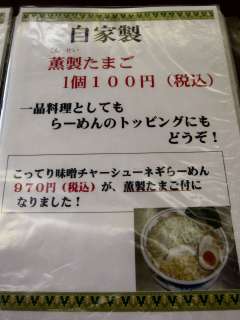 自家製
くんせい
薫製たまご
1個100円（税込）
一品料理としても
らーめんのトッピングにも
どうぞ！
こってり味噌チャーシューネギらーめん
970円（税込）が、薫製たまご付に
なりました！